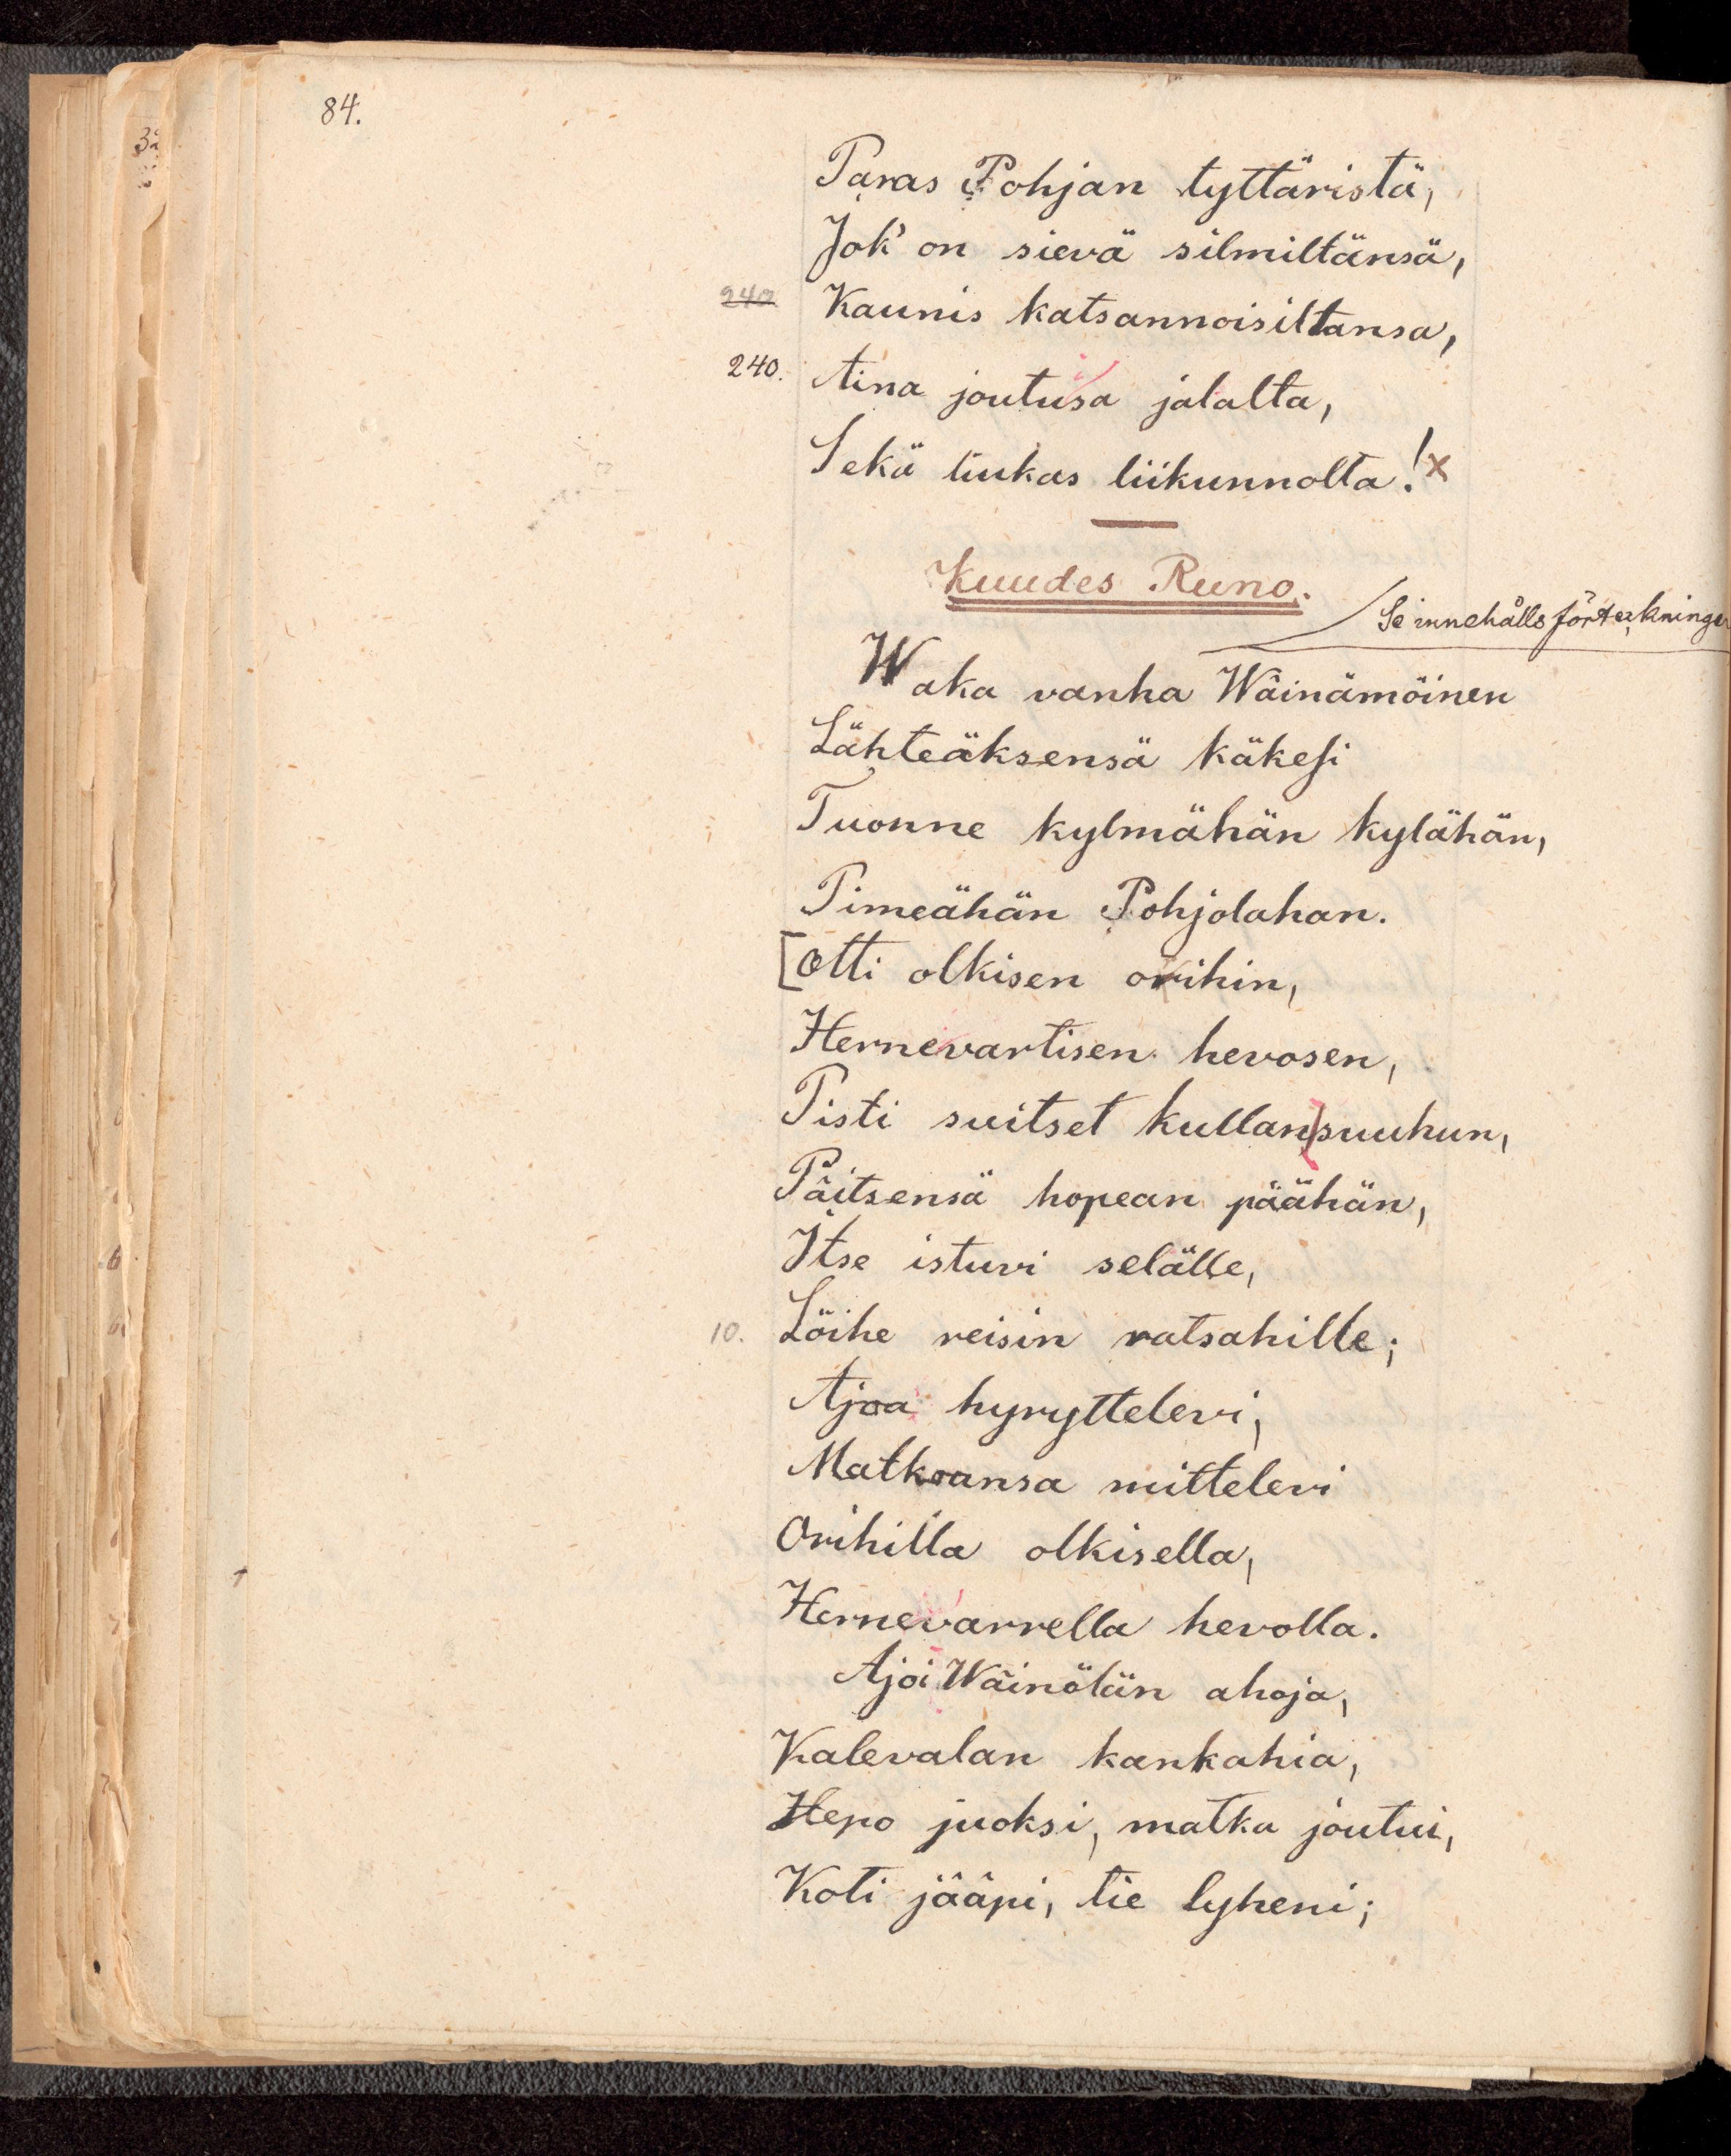 84.
Paras Pohjan tyttäristä,
Jok' on sievä silmiltänsä,
240 Kaunis katsannoisiltansa,
240. Aina joutusa jalalta,
Sekä liukas liikunnolta! x
Kuudes Runo.
Se innehållsförteckningen
Waka vanha Wäinämöinen
Lähteäksensä käkesi
Tuonne kylmähän kylähän,
Pimeähän Pohjolahan.
[Otti olkisen orihin,
Hernevartisen hevosen,
Pisti suitset kullansuuhun,
Päitsensä hopean päähän,
Itse istuvi selälle,
10. Löihe reisin ratsahille;
Ajoa hyryttelevi,
Matkoansa mittelevi
Orihilla olkisella,
Hernevarrella hevolla.
Ajoi Wäinölän ahoja,
Kalevalan kankahia,
Hepo juoksi, matka joutui,
Koti jääpi, tie lyheni;